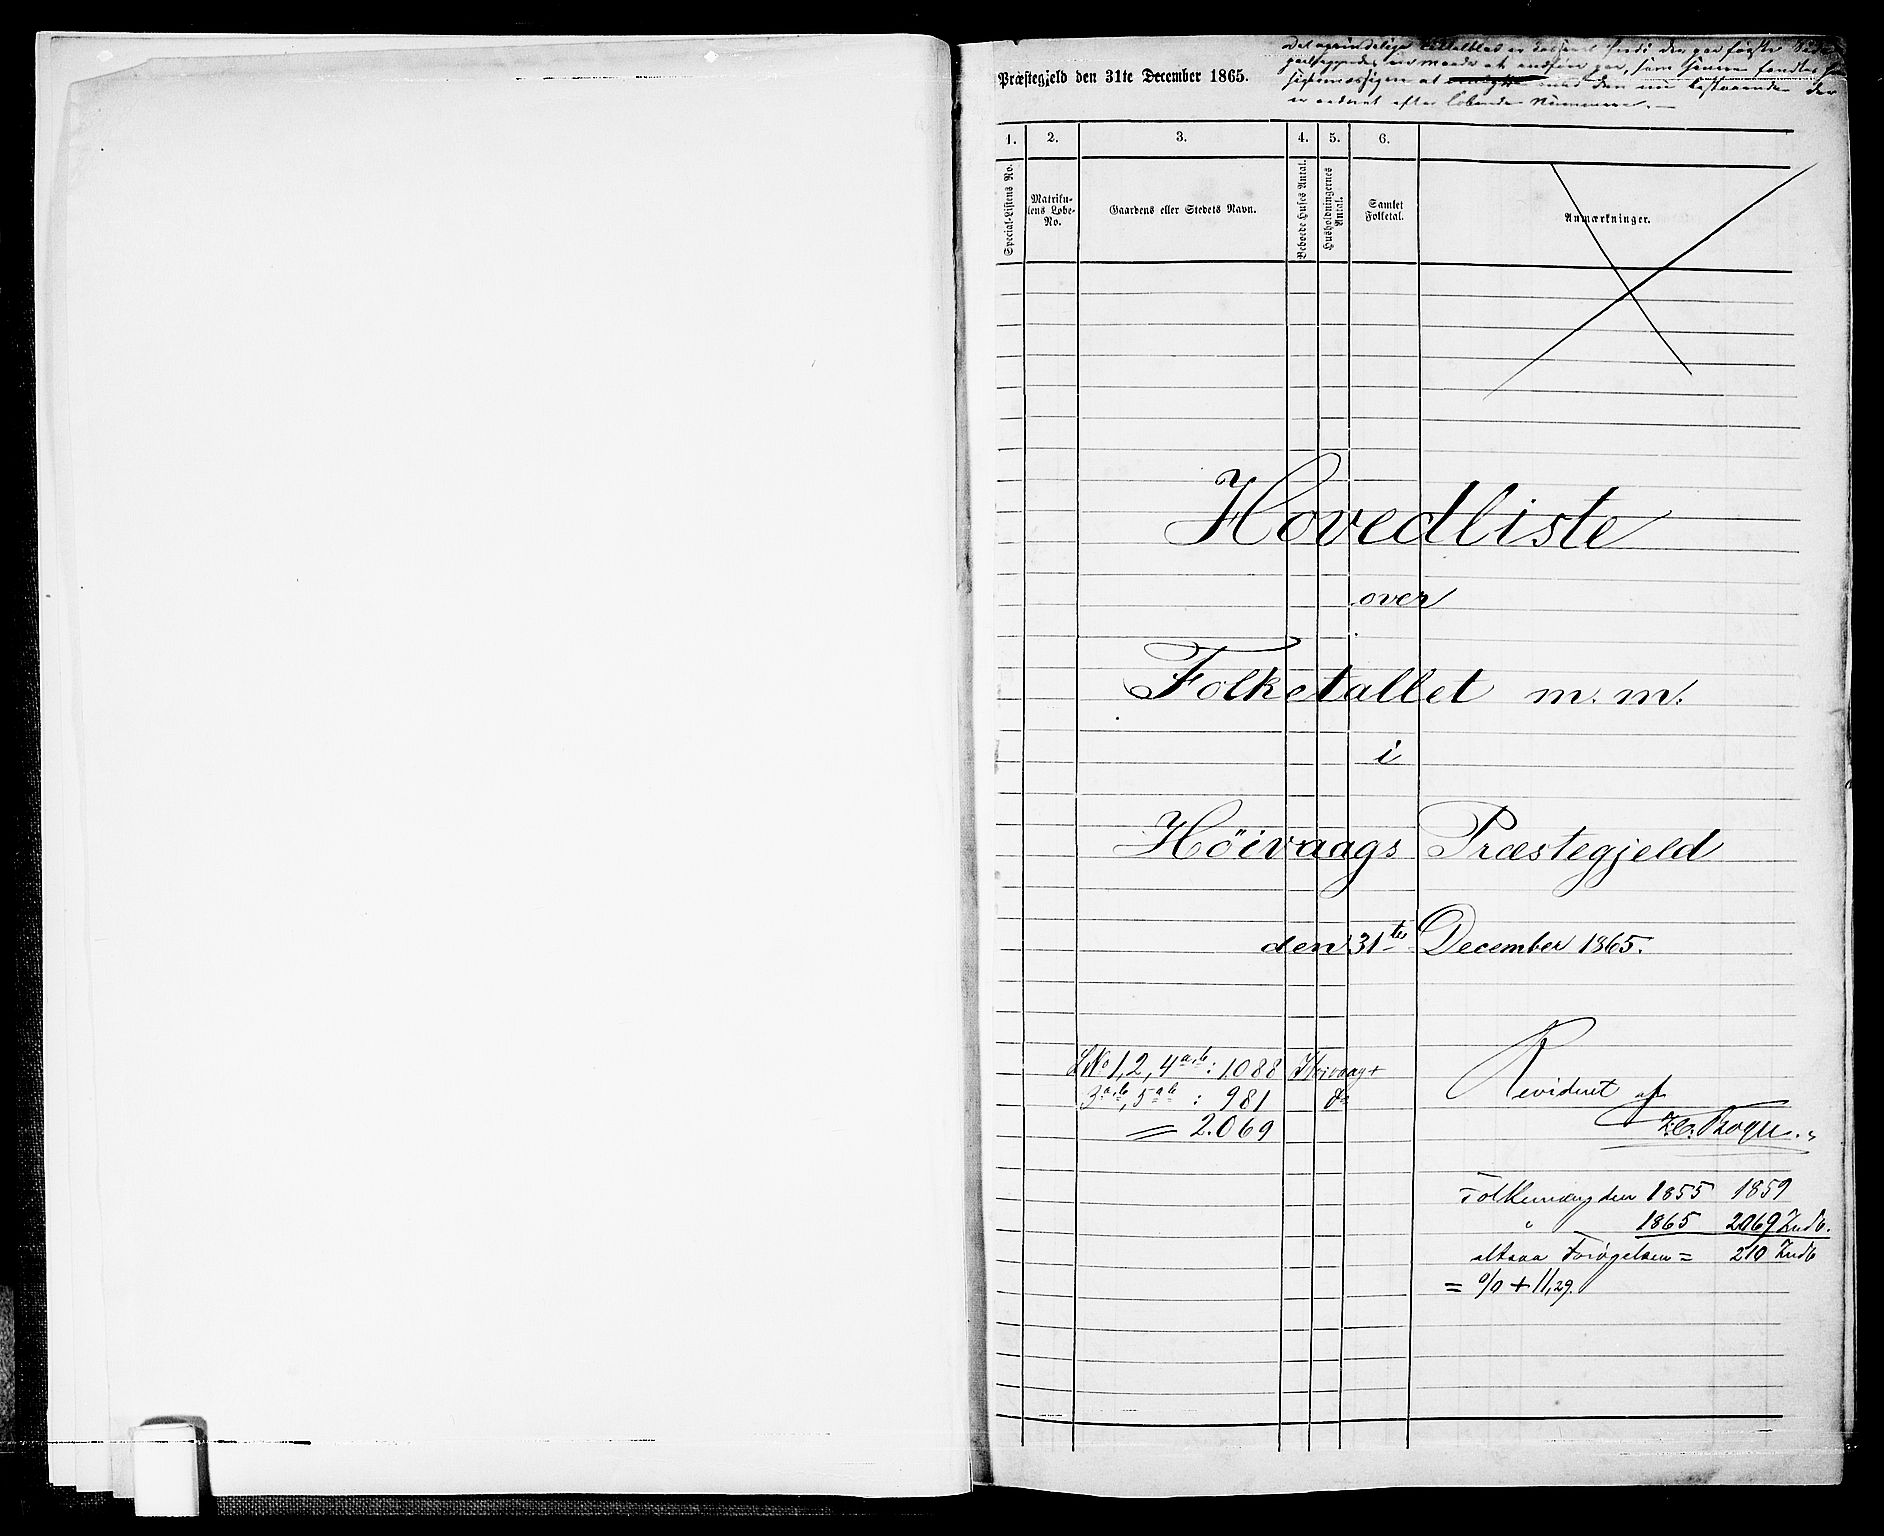 Præstegjeld den 31te December 1865.
1. 2. 3. 4. 5. 6.
Special-Listens No.
Matriku-
lens Løbe-
No.
Gaardens eller Stedets Navn.
Beboede Huses Antal.
Husholdningernes
Antal.
Samlet
Folketal.
Anmærkninger.
Hovedliste
over
Folketallet m. m.
i
Höivaags Præstegjeld
den 31te December 1865.
LNo 1, 2, 4a,b : 1088 Høivaag
3a,b, 5ab : 981 do
= 2.069
Revideret af
Folkemængden 1855 1859
" 1865 2069 Indb.
altsaa Forøgelsen = 210 Indb
= % + 11,29.